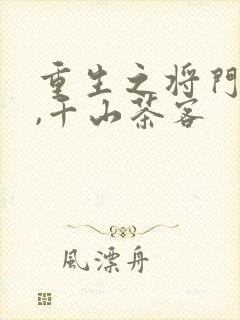 重生之将门
,千山茶客
風漂舟